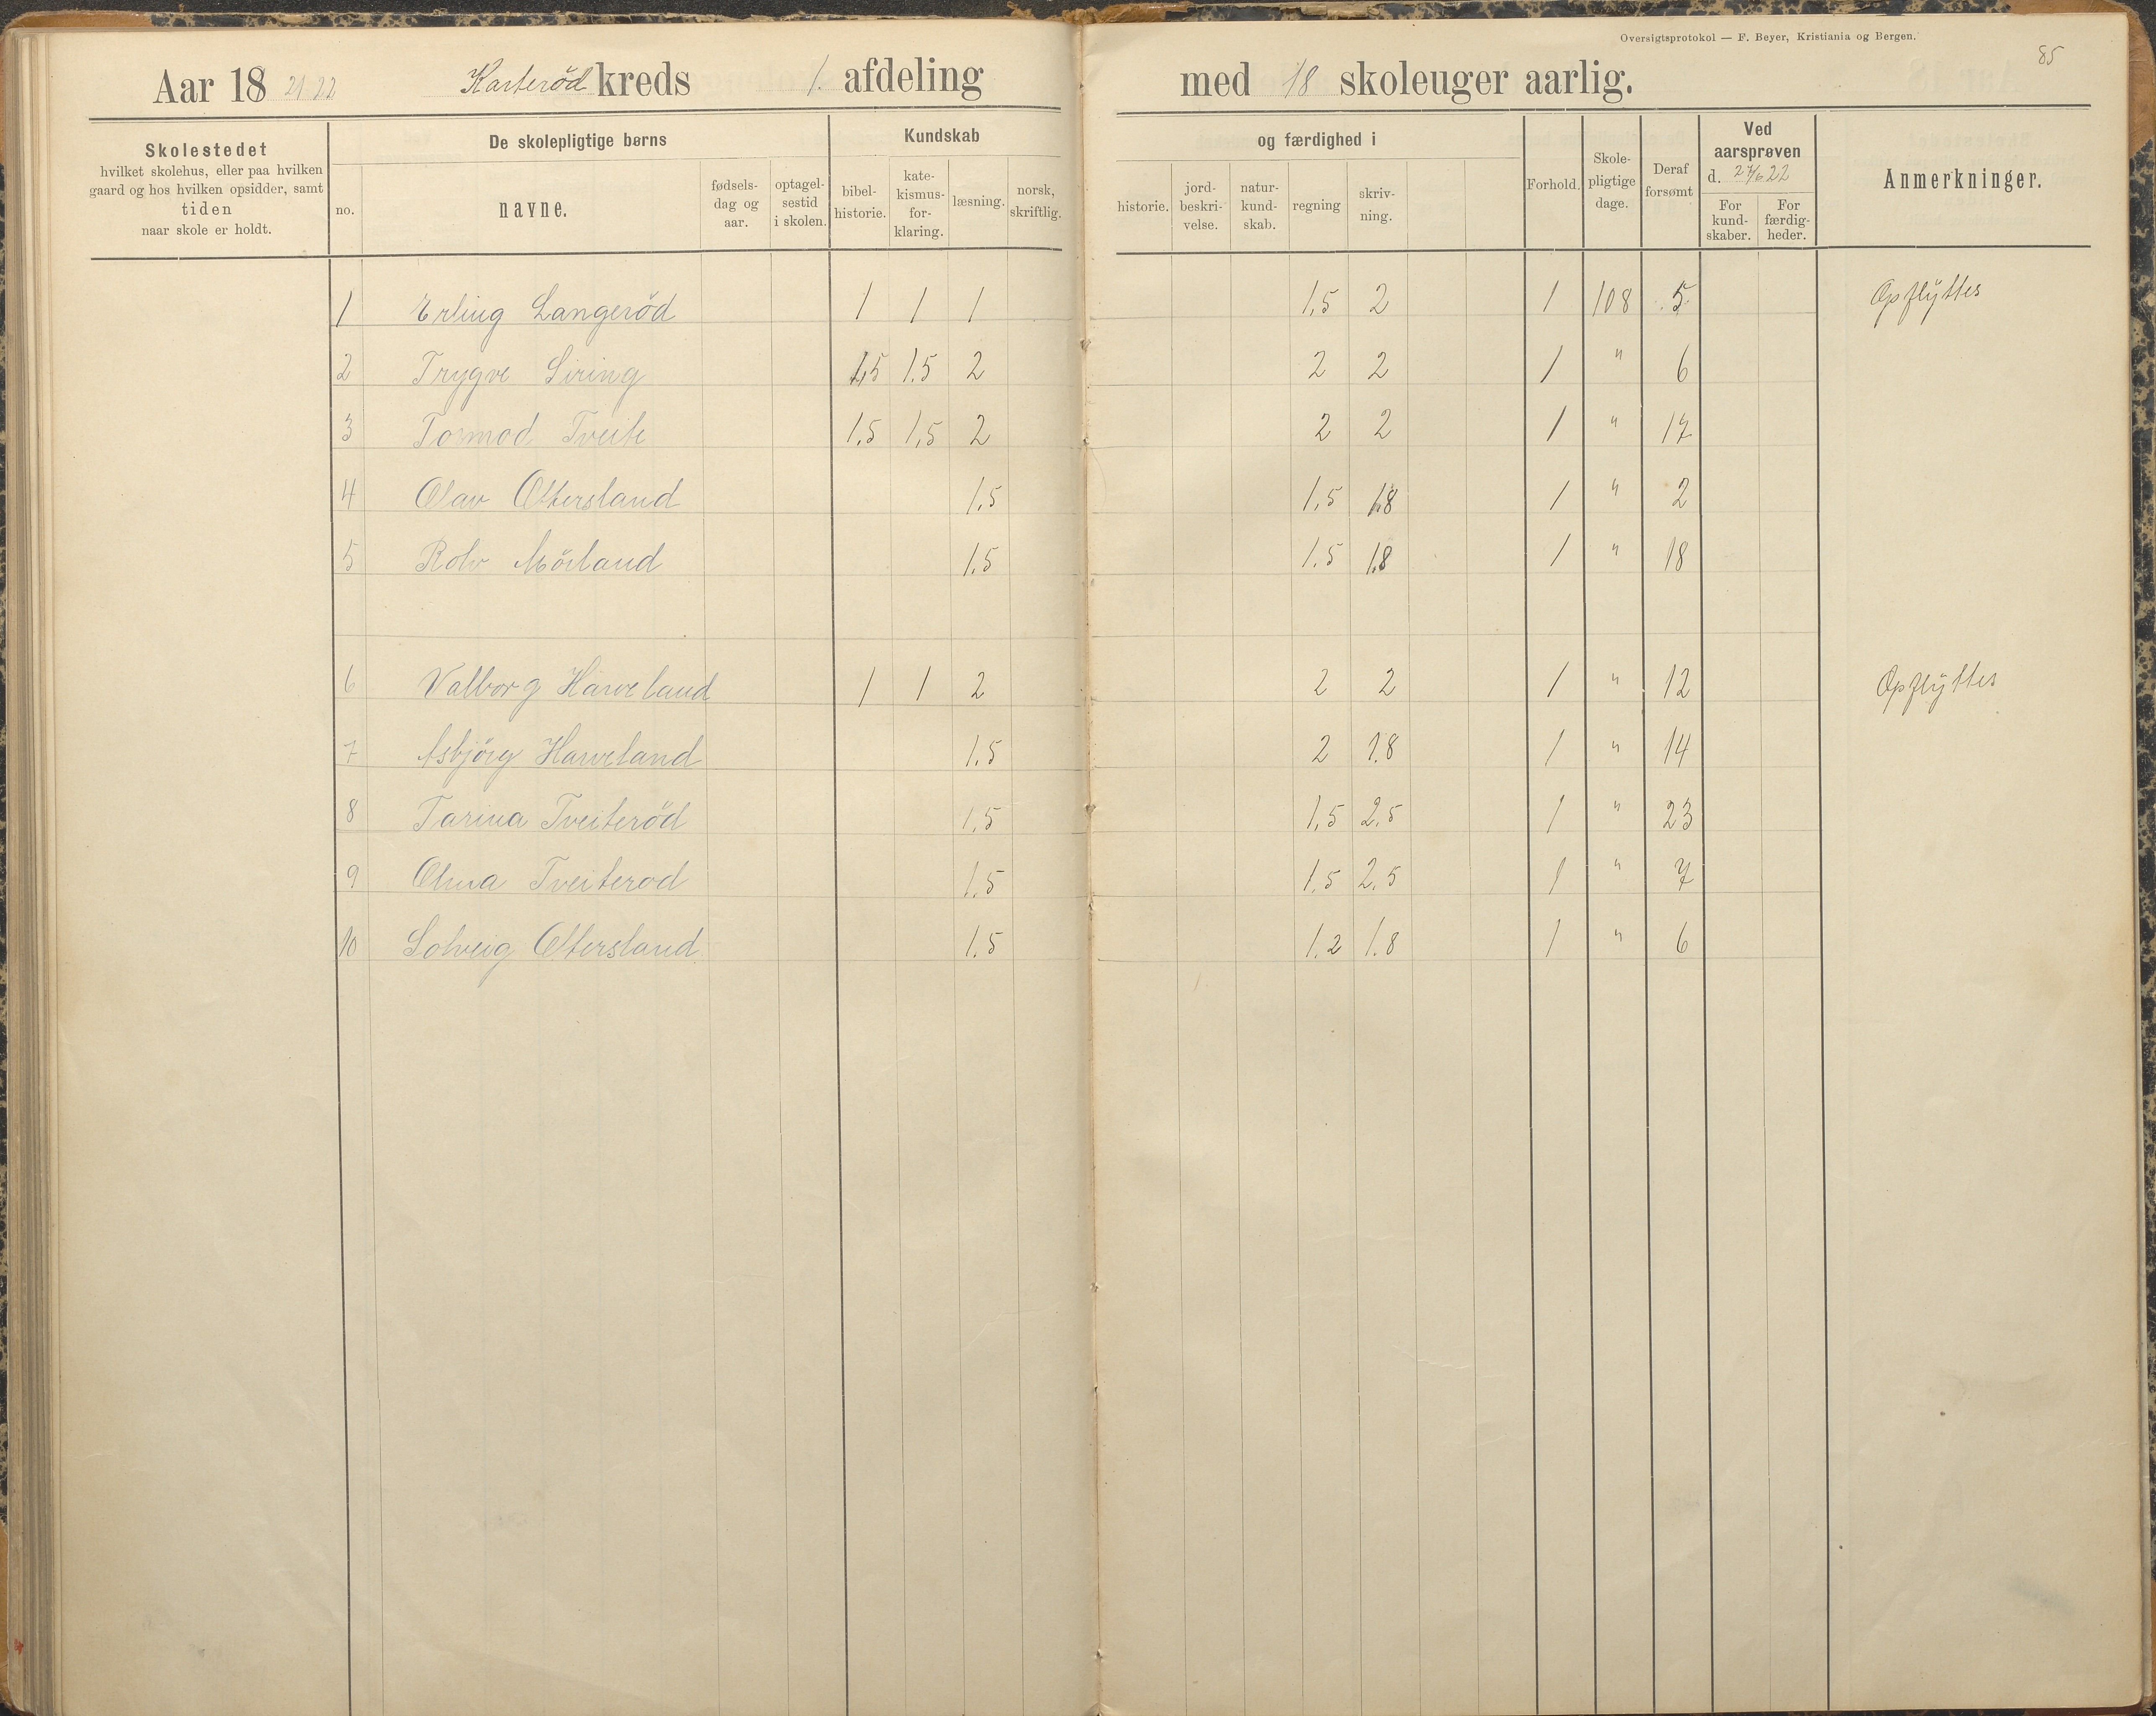 Oversigtsprotokol — F. Beyer, Kristiania og Bergen.
85
Aar 18 21 22 Karterød kreds 1. afdeling med 18 skoleuger aarlig.
Skolestedet
hvilket skolehus, eller paa hvilken
gaard og hos hvilken opsidder, samt
tiden
naar skole er holdt.
De skolepligtige børns
no.
navne.
fødsels-
dag og
aar.
optagel-
sestid
i skolen.
Kundskab
bibel-
historie.
kate-
kismus-
for-
klaring.
læsning.
norsk,
skriftlig.
og færdighed i
historie.
jord-
beskri-
velse.
natur-
kund-
skab.
regning
skriv-
ning.
Forhold.
Skole-
pligtige
dage.
Deraf
forsømt
Ved
aarsprøven
d. 27/6 22
For
kund-
skaber.
For
færdig-
heder.
Anmerkninger.
1 Erling Langerød 1 1 1 1,5 2 1 108 5 Opflyttes
2 Trygve Siring 1,5 1.5 2 2 2 1 " 6
3 Tormod Tveite 1.5 1,5 2 2 2 1 " 17
4 Olav Ottersland 1.5 1,5 1.8 1 " 2
5 Rolv Mörland 1.5 1.5 1.8 1 " 18
6 Valborg Haveland 1 1 2 2 2 1 " 12 Opflyttes
7 Asbjörg Haveland 1.5 2 1.8 1 " 14
8 Tarina Tveiteröd 1.5 1,5 2.5 1 " 23
9 Olma Tveiterod 1.5 1.5 2.5 1 " 7
10 Solveig Ottersland 1.5 1.2 1.8 1 " 6